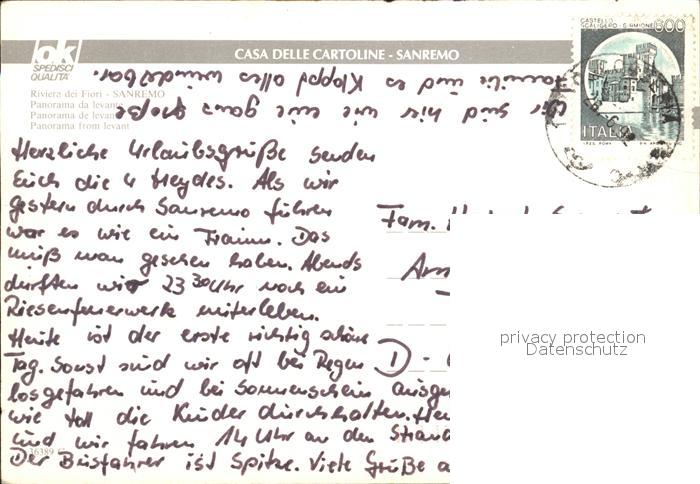 CASTELLO
SCALIGERO - SIRMIONE
600
ITALIA
ok
SPEDISCI
QUALITA'
CASA DELLE CARTOLINE - SANREMO
Riviera dei Fiori - SANREMO
Panorama da levante
Panorama de levant
Panorama from levant
Herzliche Urlaubsgrüße senden
Euch die 4 Heydes. Als wir
gestern durch Sanremo führen
war es wie ein Traum. Das
muß man gesehen haben. Abends
durften wir 23 30 Uhr noch ein
Riesenfeuerwerk miterleben.
Heute ist der erste richtig schöne
Tag. Sonst sind wir oft bei Regen
losgefahren und bei Sonnenschein
wie toll die Kinder durchhalten.
und wir fahren 14 Uhr an den
Der Busfahrer ist Spitze. Viele Grüße
wir sind hier wie eine ganz große
Familie und es klappt alles wunderbar.
Fam.
D -
privacy protection
Datenschutz
36389